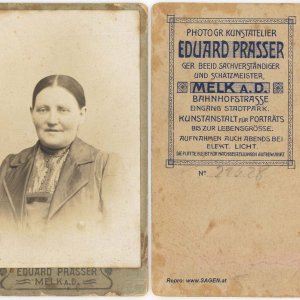 EDUARD PRASSER
MELK A.D.
PHOTOGR. KUNSTATELIER
EDUARD PRASSER
GER. BEEID. SACHVERSTÄNDIGER
UND SCHATZMEISTER,
MELK A.D.
BAHNHOFSTRASSE
EINGANG STADTPARK.
KUNSTANSTALT FÜR PORTRÄTS
BIS ZUR LEBENSGRÖSSE.
AUFNAHMEN AUCH ABENDS BEI
ELEKT. LICHT.
DIE PLATTE BLEIBT FÜR NACHBESTELLUNGEN AUFBEWAHRT
No
Repro: www.SAGEN.at